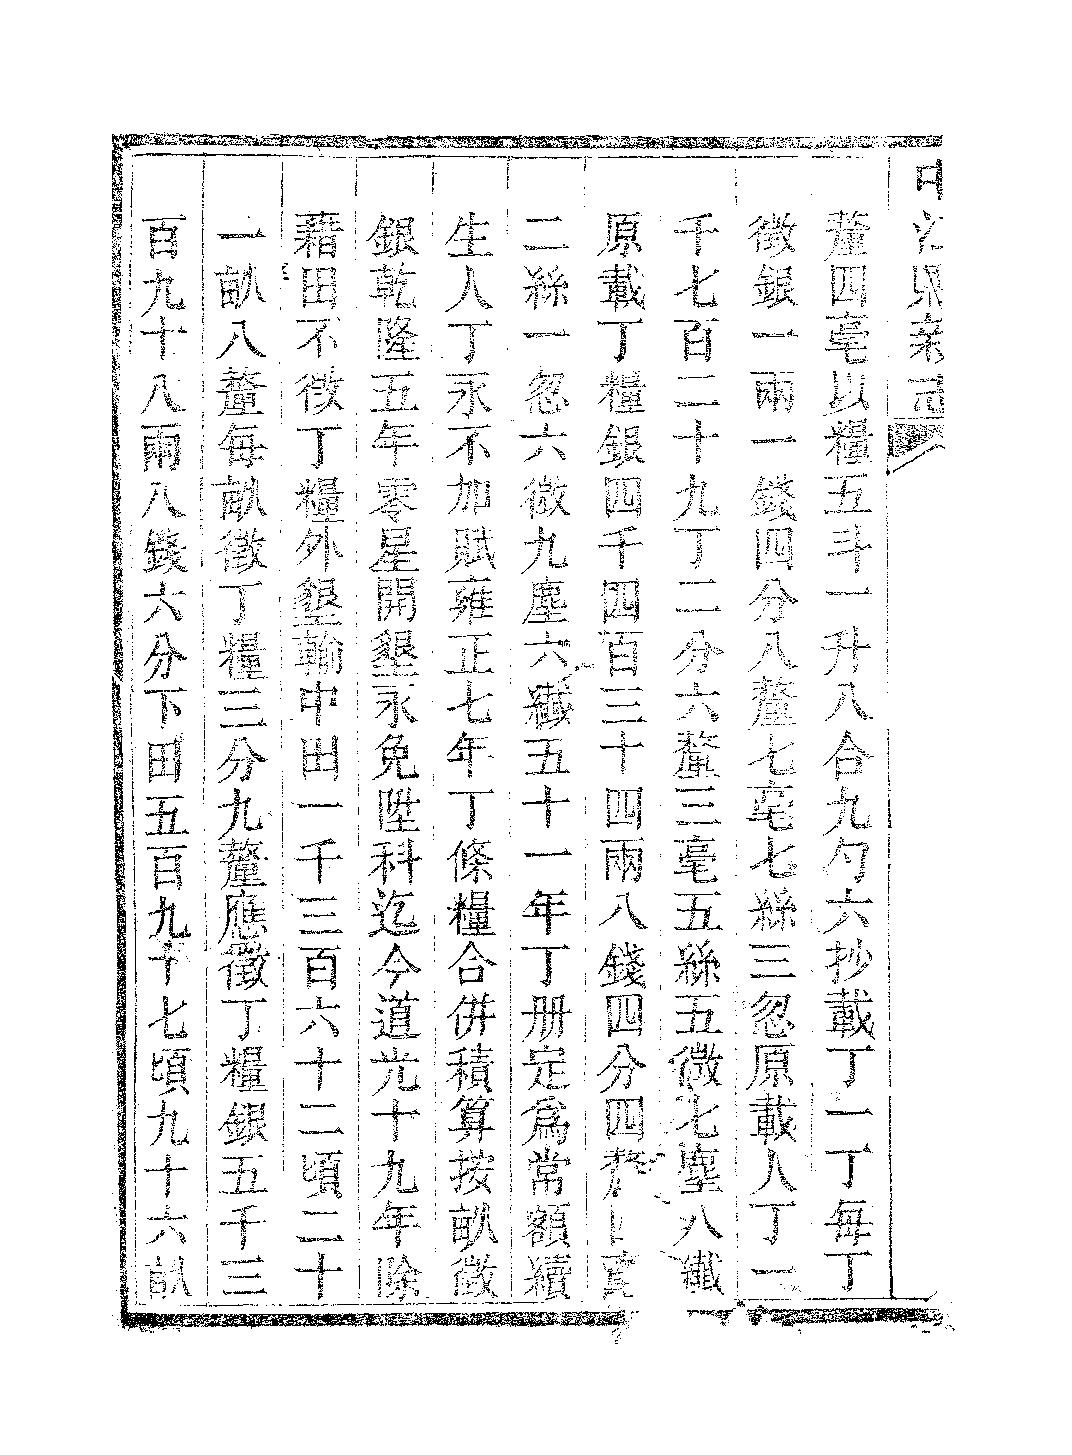 釐四毫以糧五斗一升八合九勺六抄載丁一丁每丁
徵銀一兩一錢四分八釐七毫七絲三忽原載人丁一
千七百二十九丁二分六釐三毫五絲五微七塵八纖
原載丁糧銀四千四百三十四兩八錢四分四
二絲一忽六微九塵六纖五十一年丁册定爲常額續
生人丁永不加賦雍正七年丁條糧合併積算按畝徵
銀乾隆五年零星開墾永免陞科迄今道光十九年除
藉田不徵丁糧外墾輸中田一千三百六十二頃二十
一畝八釐每畝徵丁糧三分九釐應徵丁糧銀五千三
百九十八兩八錢六分下田五百九十七頃九十六畝